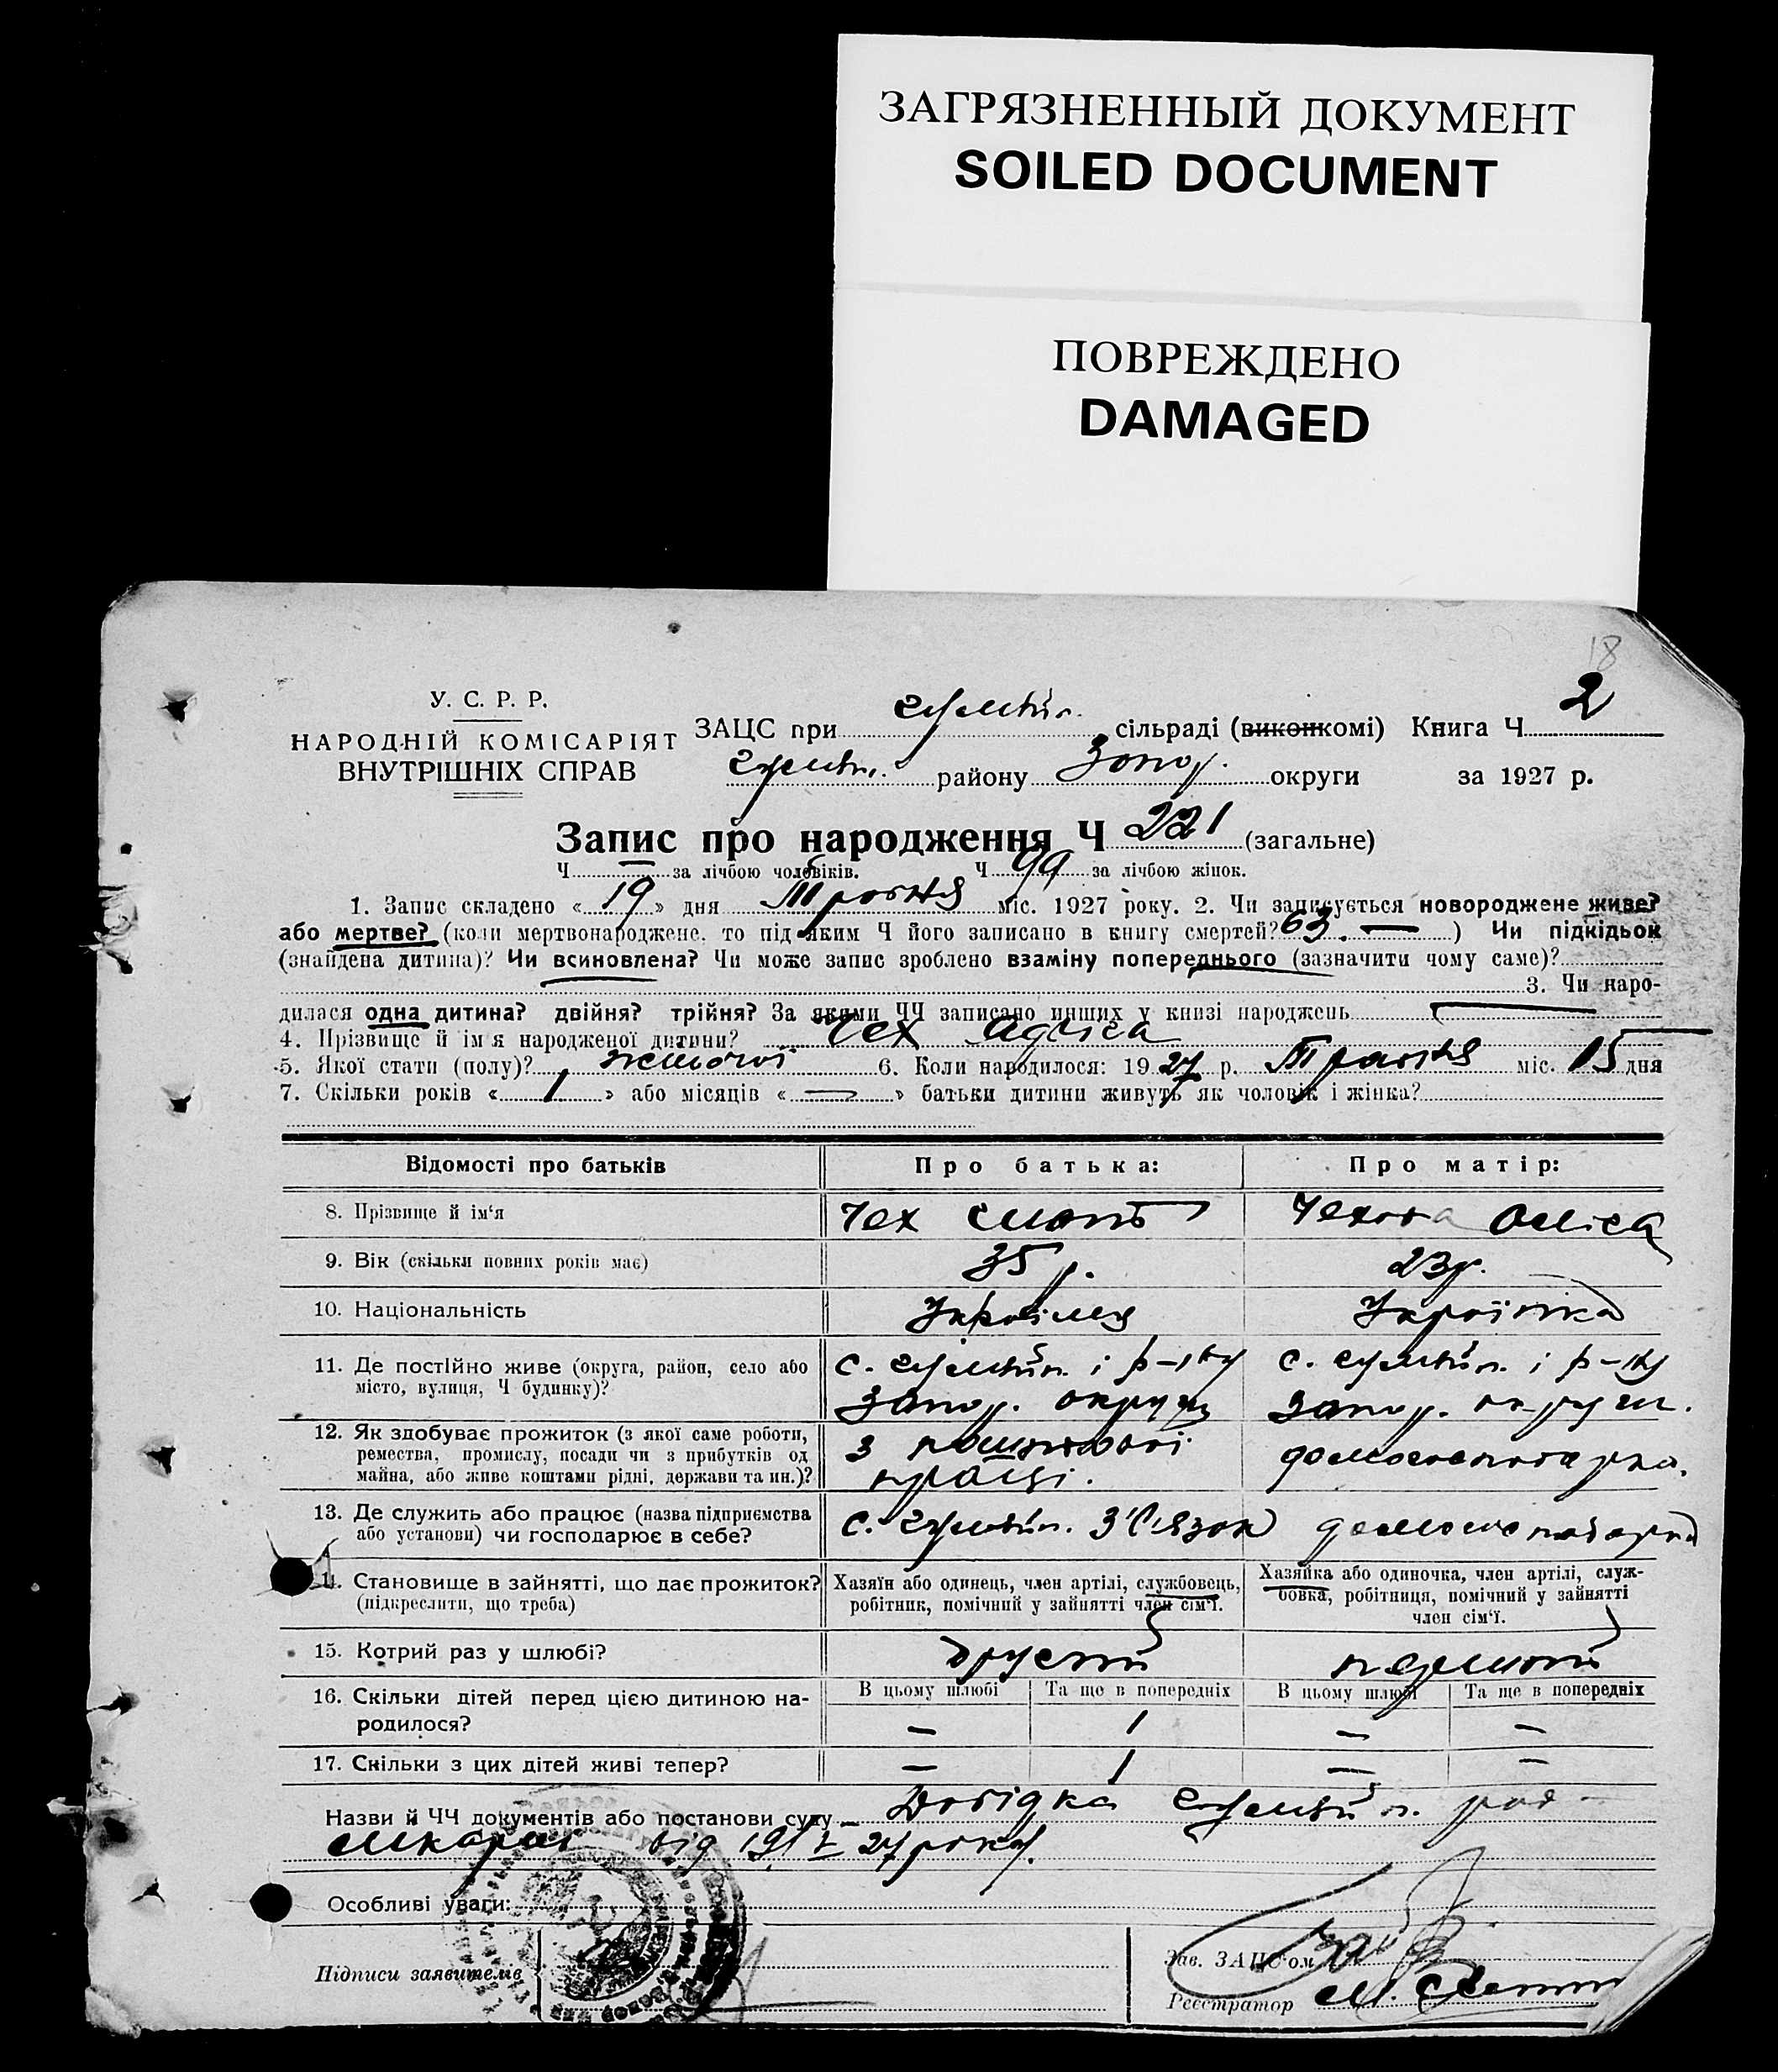 ЗАГРЯЗНЕННЫЙ ДОКУМЕНТ
SOILED DOCUMENT
ПОВРЕЖДЕНО
DAMAGED
18
У. С. Р. Р.
НАРОДНІЙ КОМІСАРІЯТ
ВНУТРІШНІХ СПРАВ
ЗАЦС при сільраді (виконкомі) Книга Ч 2
району Запор. округи за 1927 р.
Запис про народження Ч 221 (загальне)
Ч — за лічбою чоловіків. Ч 99 за лічбою жінок.
1. Запис складено «19» дня Травня міс. 1927 року. 2. Чи записується новороджене живе?
або мертве? (коли мертвонароджене, то під яким Ч його записано в книгу смертей? 63. — ) Чи підкідьок
(знайдена дитина)? Чи всиновлена? Чи може запис зроблено взаміну попереднього (зазначити чому саме)?
3. Чи наро-
дилася одна дитина? двійня? трійня? За якими ЧЧ записано инших у книзі народжень —
4. Прізвище й ім'я народженої дитини? Чех
5. Якої стати (полу)? жіночої 6. Коли народилося: 1927 р. Травня міс. 15 дня
7. Скільки років «1» або місяців «—» батьки дитини живуть як чоловік і жінка?
Відомості про батьків Про батька: Про матір:
8. Прізвище й ім'я Чех Чехова
9. Вік (скільки повних років має) 35 р. 23 р.
10. Національність Українец Українка
11. Де постійно живе (округа, район, село або
місто, вулиця, Ч будинку)?
с. і р-ну с. і р-ну
Запор. округи Запор. округи.
12. Як здобуває прожиток (з якої саме роботи,
ремества, промислу, посади чи з прибутків од
майна, або живе коштами рідні, держави та ин.)?
з поштової домогосподарка.
праці.
13. Де служить або працює (назва підприємства
або установи) чи господарює в себе?
с. Зв'язок домогосподарка
14. Становище в зайнятті, що дає прожиток?
(підкреслити, що треба)
Хазяїн або одинець, член артілі, службовець,
робітник, помічний у зайнятті член сім'ї.
Хазяйка або одиночка, член артілі, служ-
бовка, робітниця, помічний у зайнятті
член сім'ї.
15. Котрий раз у шлюбі? другий перший
16. Скільки дітей перед цією дитиною на-
родилося?
В цьому шлюбі Та ще в попередніх В цьому шлюбі Та ще в попередніх
— 1 — —
17. Скільки з цих дітей живі тепер? — 1 — —
Назви й ЧЧ документів або постанови суду — Довідка рай-
лікарні від 19/V 27 року.
Особливі уваги:
Підписи заявителів
Зав. ЗАЦС'ом
Реєстратор